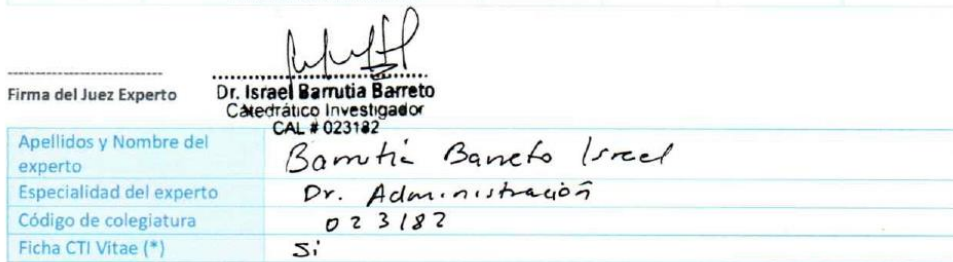 Firma del Juez Experto
Dr. Israel Barrutia Barreto
Catedrático Investigador
CAL # 023182
Apellidos y Nombre del experto Barrutia Barreto Israel
Especialidad del experto Dr. Administración
Código de colegiatura 023182
Ficha CTI Vitae (*) Si